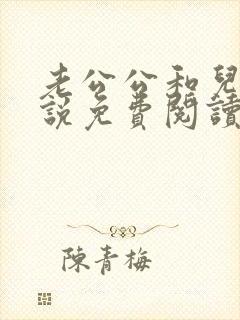 老公公和兒
說免費閱讀
陳青梅